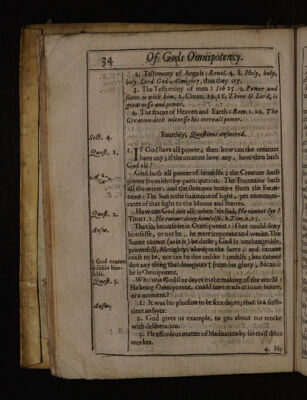 34 Of Gods Omnipotency.
2. Testimony of Angels: Revel. 4. 8. Holy, holy,
holy Lord God Almighty, thus they cry.
3. The Testimony of men: Iob 25. 2. Power and
feare is with him; 1. Chron. 29. 11. Thine O Lord, is
greatnesse and power.
4. The frame of Heaven and Earth: Rom. 1. 20. The
Creation doth witnesse his eternall power.
Sect. 4.
Fourthly, Questions answered.
Quest. 1.
IF God have all power, then how can the creature
have any; if the creature have any, how then hath
God all?
Answ.
God hath all power of himselfe; the Creature hath
power from him by participation. The Fountaine hath
all the water, and the streames receive from the Foun-
taine: The Sun is the fountaine of light, yet communi-
cates of that light to the Moone and Starres.
Quest. 2.
How can God doe all, when 'tis said, He cannot lye?
Titus 1. 2. He cannot deny himselfe, 2. Tim. 2. 13.
Answ.
That is, because he is Omnipotent; if hee could deny
himselfe, or not be, he were impotent and weake. The
Sunne cannot be darke; God is unchangeable,
the same, and cannot
God cannot
cease to be, nor can he doe unlike himselfe; hee cannot
doe any thing that derogates from his glory, because
he is Omnipotent.
Quest. 3.
Why was God six dayes in the making of the world?
He being Omnipotent, could have made it in an houre,
or a moment?
Answ.
1. It was his pleasure to be sixe dayes; that is a suffi-
cient answer.
2. God gives us example, to goe about our worke
with deliberation.
3. He affords us matter of Meditation by severall dayes
workes.
4. He